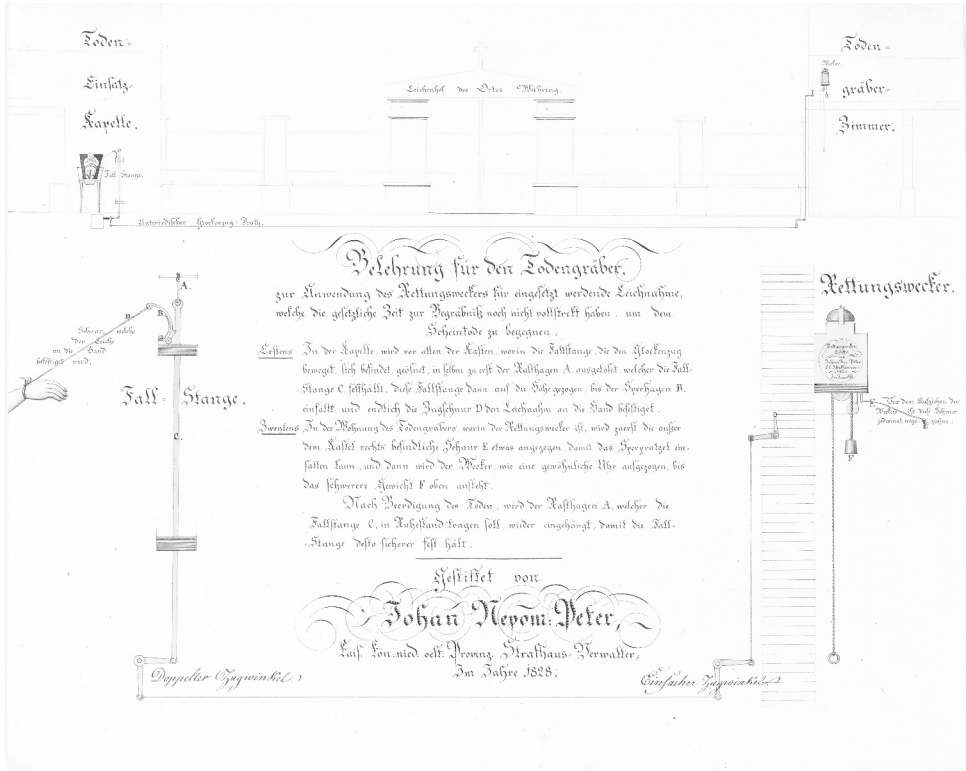 Toden-
Einsatz-
Kapelle.
Fall Stange.
Unterirdischer Glockenzug-Drath.
Leichenhof des Ortes Währing.
Toden-
gräber-
Zimmer.
Weker.
Belehrung für den Todengräber,
zur Anwendung des Rettungsweckers für eingesetzt werdende Leichname,
welche die gesetzliche Zeit zur Begräbniß noch nicht vollstrekt haben, um dem
Scheintode zu begegnen.
Erstens In der Kapelle, wird vor allen der Kasten, worin die Fallstange, die den Glockenzug
beweget, sich befindet, geöfnet, in selben zu erst der Rasthagen A, ausgelöst welcher die Fall-
-Stange C, festhällt, diese Fallstange dann auf die Höhe gezogen, bis der Sperhagen B,
einfällt, und endlich die Zugschnur D den Leichnahm an die Hand befestiget.
Zweytens In der Wohnung des Todengräbers, worin der Rettungswecker ist, wird zuerst die ausser
dem Kastel rechts befindliche Schnur E etwas angezogen, damit das Sperpratzel ein-
fallen kann, und dann wird der Wecker, wie eine gewöhnliche Uhr aufgezogen, bis
das schwerere Gewicht F oben ansteht.
Nach Beerdigung des Toden, wird der Rasthagen A, welcher die
Fallstange C, in Ruhestand tragen soll, wieder eingehängt, damit die Fall-
-Stange desto sicherer fest hält.
Gestiftet von
Johan Nepom: Peter,
Kais. kön. nied. oest. Provinz. Strafhaus-Verwalter,
Im Jahre 1828.
A.
B
D
Schnur, welche
der Leiche
an die Hand
befestiget wird.
Fall-Stange.
C.
Doppelter Zugwinkel
Einfacher Zugwinkel
Rettungswecker.
E
Vor dem Aufziehen des
Weckers ist diese Schnur
F